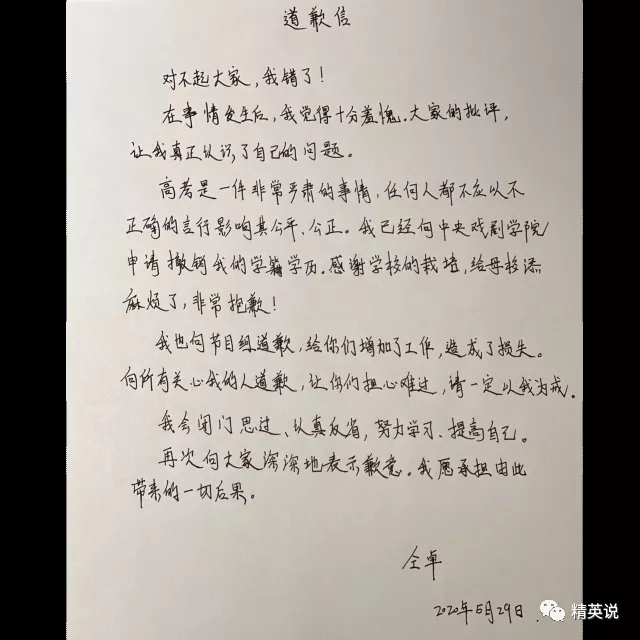 道歉信
对不起大家，我错了！
在事情发生后，我觉得十分羞愧。大家的批评，
让我真正认识了自己的问题。
高考是一件非常严肃的事情，任何人都不应以不
正确的言行影响其公平、公正。我已经向中央戏剧学院
申请撤销我的学籍学历。感谢学校的栽培，给母校添
麻烦了，非常抱歉！
我也向节目组道歉，给你们增加了工作，造成了损失。
向所有关心我的人道歉，让你们担心难过，请一定以我为戒。
我会闭门思过、认真反省，努力学习、提高自己。
再次向大家深深地表示歉意。我愿承担由此
带来的一切后果。
仝卓
2020年5月29日
精英说